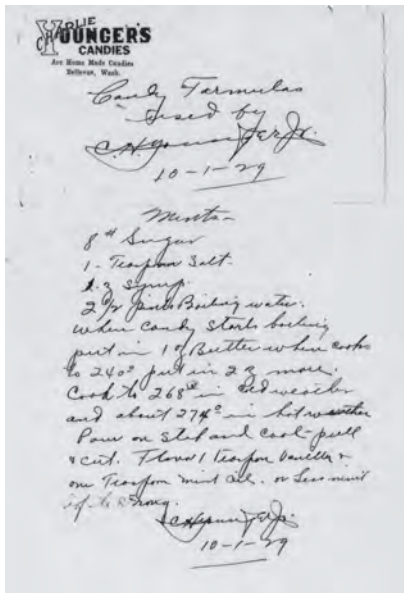 CHARLIE
YOUNGER'S
CANDIES
Are Home Made Candies
Bellevue, Wash.
Candy Formulas
used by
C.H. Younger Jr.
10-1-29
Mints-
8# Sugar
1- Teaspoon Salt.
z Syrup.
2 1/2 pints Boiling water.
When Candy Starts boiling
put in 1 z Butter when cooks
to 240° put in 2 z more.
Cook to 268° in cold weather
and about 274° in hot weather
Pour on slab and cool- pull
& cut. Flavor 1 teaspoon Vanilla &
one Teaspoon mint oil. or Less mint
if to strong.
C.H. Younger Jr.
10-1-29